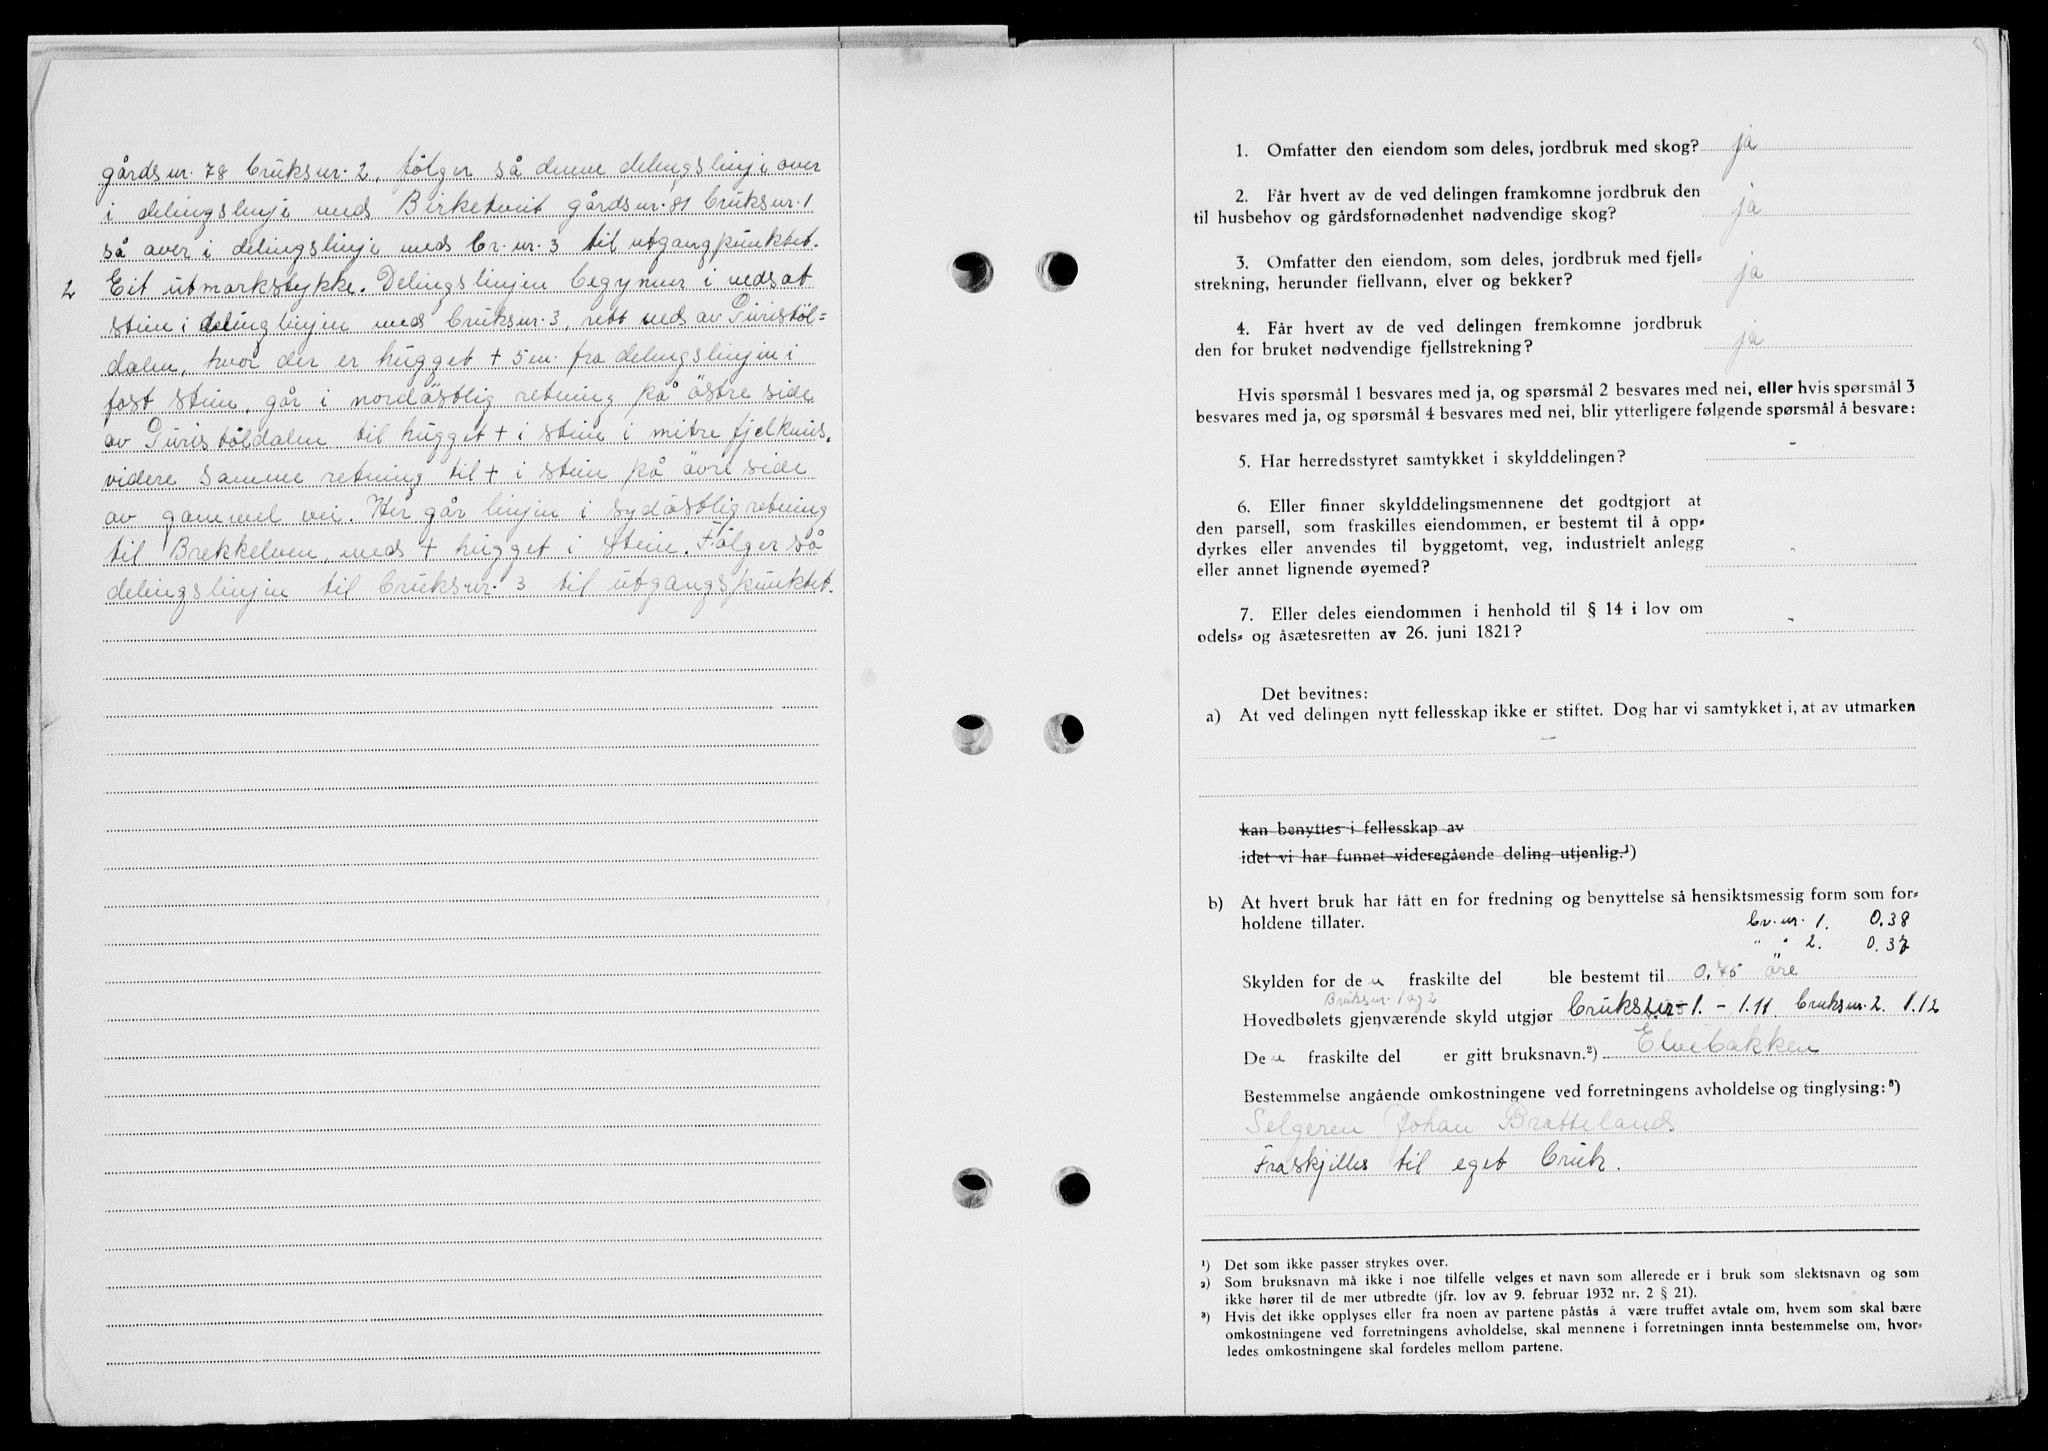 gårdsnr. 78 bruksnr. 2, følger så denne delingslinje over
i delingslinje med Birketveit gårdsnr. 81 bruksnr. 1
så over i delingslinje med br. nr. 3 til utgangpunktet.
2 Eit utmarkstykke. Delingslinjen begynner i nedsat
stein i delinglinjen med bruksnr. 3, rett ned av Puristöl=
dalen, hvor der er hugget + 5 m. fra delingslinjen i
fast stein, går i nordöstlig retning på östre side
av Puristöldalen til hugget + i stein i mitre fjelknus,
videre samme retning til + i stein på övre side
av gammel vei. Her går linjen i sydöstlig retning
til Brekkelven, med + hugget i stein. Følger så
delingslinjen til bruksnr. 3 til utgangspunktet.
1. Omfatter den eiendom som deles, jordbruk med skog? ja
2. Får hvert av de ved delingen framkomne jordbruk den
til husbehov og gårdsfornødenhet nødvendige skog? ja
3. Omfatter den eiendom, som deles, jordbruk med fjell=
strekning, herunder fiellvann, elver og bekker? ja
4. Får hvert av de ved delingen fremkomne jordbruk
den for bruket nødvendige fjellstrekning? ja
Hvis spørsmål 1 besvares med ja, og spørsmål 2 besvares med nei, eller hvis spørsmål 3
besvares med ja, og spørsmål 4 besvares med nei, blir ytterligere følgende spørsmål å besvare:
5. Har herredsstyret samtykket i skylddelingen? -
6. Eller finner skylddelingsmennene det godtgjort at
den parsell, som fraskilles eiendommen, er bestemt til å opp=
dyrkes eller anvendes til byggetomt, veg, industrielt anlegg
eller annet lignende øyemed? -
7. Eller deles eiendommen i henhold til § 14 i lov om
odels= og åsætesretten av 26. juni 1821? -
Det bevitnes:
a) At ved delingen nytt fellesskap ikke er stiftet. Dog har vi samtykket i, at av utmarken
-
kan benyttes i fellesskap av
idet vi har funnet videregående deling utjenlig.¹)
b) At hvert bruk har fått en for fredning og benyttelse så hensiktsmessig form som for=
holdene tillater. br. nr. 1. 0.38
" " 2. 0.37
Skylden for den fraskilte del ble bestemt til 0.75 öre
Bruksnr. 1 og 2
Hovedbølets gjenværende skyld utgjør bruksnr 1. - 1.11 bruksnr. 2. 1.12
Den fraskilte del er gitt bruksnavn.²) Elvebakken
Bestemmelse angående omkostningene ved forretningens avholdelse og tinglysing:³)
Selgeren Johan Bratteland
Fraskjilles til eget bruk.
¹) Det som ikke passer strykes over.
²) Som bruksnavn må ikke i noe tilfelle velges et navn som allerede er i bruk som slektsnavn og som
ikke hører til de mer utbredte (jfr. lov av 9. februar 1932 nr. 2 § 21).
³) Hvis det ikke opplyses eller fra noen av partene påstås å være truffet avtale om, hvem som skal bære
omkostningene ved forretningens avholdelse, skal mennene i forretningen innta bestemmelse om, hvor=
ledes omkostningene skal fordeles mellom partene.